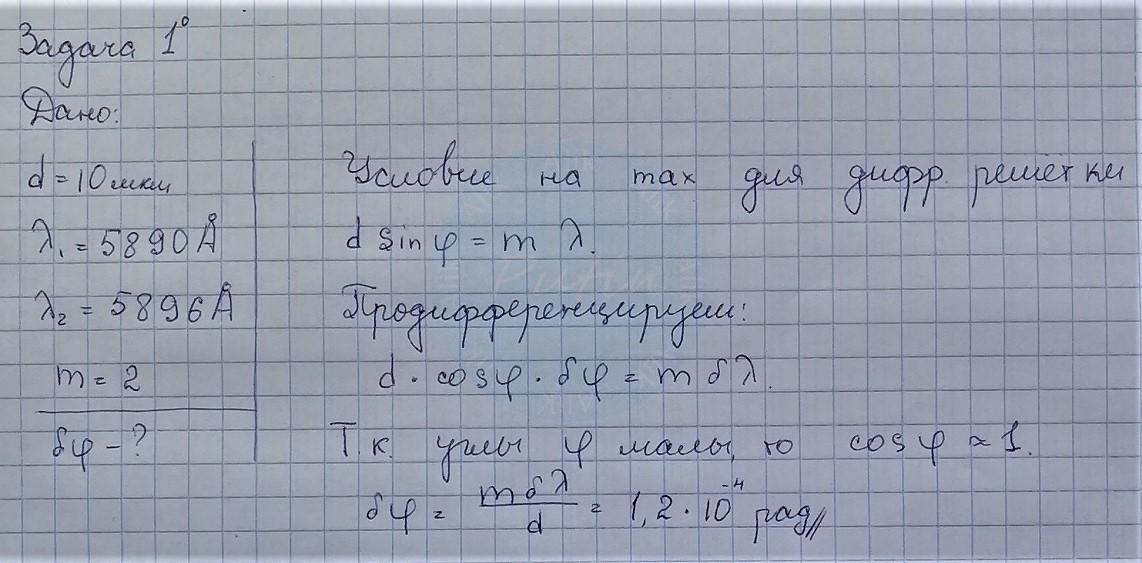 Задача 1°
Дано:
d = 10 мкм
λ₁ = 5890 Å
λ₂ = 5896 Å
m = 2
δφ - ?
Условие на max для дифр. решётки
d sin φ = m λ.
Продифференцируем:
d · cos φ · δφ = m δλ.
Т.к. углы φ малы, то cos φ ≈ 1.
δφ = mδλ/d = 1,2 · 10⁻⁴ рад//